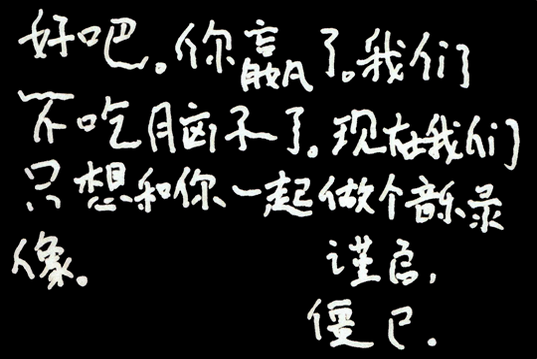 好吧。你赢了。我们
不吃脑子了。现在我们
只想和你一起做个音乐录
像。 谨启，
僵尸。